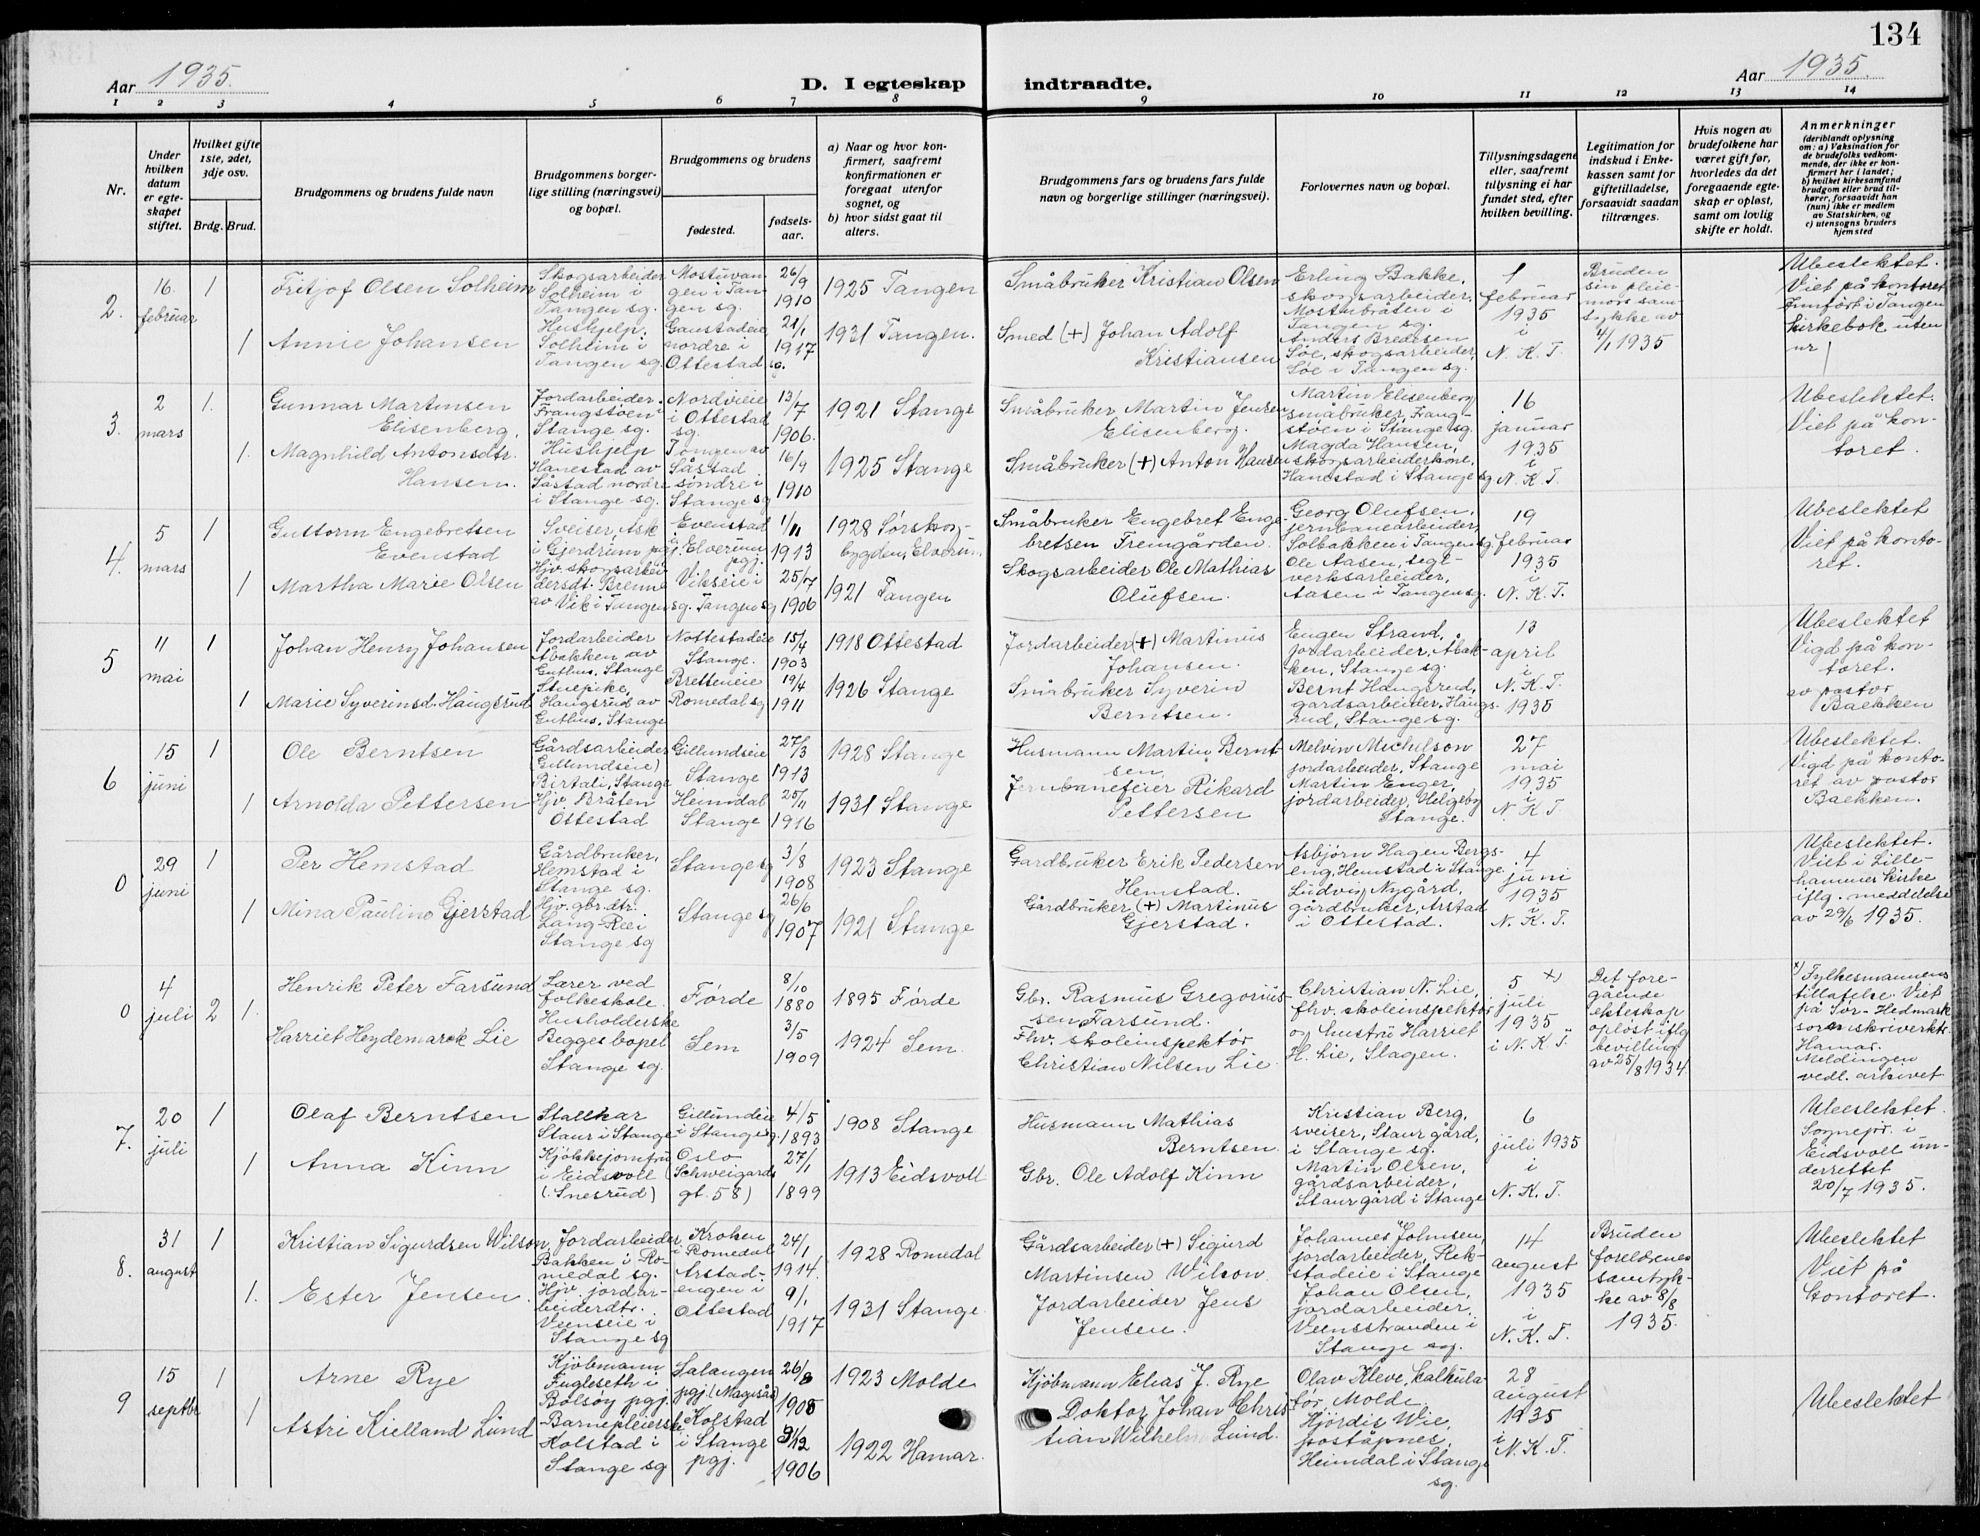 134
Aar 1935.
D. I egteskap indtraadte.
Aar 1935.
1 2 3 4 5 6 7 8 9 10 11 12 13 14
Nr.
Under hvilken datum er egteskapet stiftet.
Hvilket gifte 1ste, 2det, 3dje osv.
Brdg. Brud.
Brudgommens og brudens fulde navn
Brudgommens borgerlige stilling (næringsvei) og bopæl.
Brudgommens og brudens
fødested.
fødselsaar.
a) Naar og hvor konfirmert, saafremt konfirmationen er foregaat utenfor sognet, og
b) hvor sidst gaat til alters.
Brudgommens fars og brudens fars fulde navn og borgerlige stillinger (næringsvei).
Forlovernes navn og bopæl.
Tillysningsdagene eller, saafremt tillysning ei har fundet sted, efter hvilken bevilling.
Legitimation for indskud i Enkekassen samt for giftetilladelse, forsaavidt saadan tiltrænges.
Hvis nogen av brudefolkene har været gift før, hvorledes da det foregaaende egteskap er opløst, samt om lovlig skifte er holdt.
Anmerkninger
(deriblandt oplysning om: a) Vaksination for de brudefolks vedkommende, der ikke er konfirmert her i landet; b) hvilket kirkesamfund brudgom eller brud tilhører, forsaavidt han (hun) ikke er medlem av Statskirken, og c) utensogns bruders hjemsted
2. 16 februar 1
Fritjof Olsen Solheim
Skogsarbeider Solheim i Tangen sg.
Mostuvangen i Tangen sg.
26/9 1910
1925 Tangen
Småbruker Kristian Olsen
Erling Bakke, skogsarbeider, Mostubråten i Tangen sg.
1 februar 1935 i N. K. T.
Bruden sin pleiemors samtykke av 4/1 1935
Ubeslektet. Viet på kontoret. Innført i Tangen kirkebok uten nr
1
Annie Johansen
Hushjelp, Solheim i Tangen sg.
Gaustadeie nordre i Ottestad sg.
21/1 1917
1931 Tangen.
Smed (+) Johan Adolf Kristiansen
Anders Bredesen Søe, skogsarbeider, Søe i Tangen sg.
3. 2 mars 1.
Gunnar Martinsen Elisenberg.
Jordarbeider. Frangstøen i Stange sg.
Nordvieie i Ottestad sg.
13/7 1906.
1921 Stange
Småbruker Martin Jensen Elisenberg.
Martin Elisenberg småbruker, Frangstøen i Stange sg.
16 januar 1935 i N. K. T.
Ubeslektet. Viet på kontoret.
1.
Magnhild Antonsdtr. Hansen.
Hushjelp Hanestad av Såstad nordre i Stange sg.
Tongen av Såstad søndre i Stange sg
16/9 1910
1925 Stange
Småbruker (+) Anton Hansen
Magda Hansen, skogsarbeiderkone, Hanestad i Stange sg
4. 5 mars 1
Guttorm Engebretsen Evenstad
Sveiser, Ask i Gjerdrum pgj.
Evenstad i Elverum pgj.
1/11 1913
1928 Sørskogbygden, Elverum.
Småbruker Engebret Engebretsen Fremgården.
Georg Olufsen, jernbanearbeider, Solbakken i Tangen sg.
19 februar 1935 i N. K. T.
Ubeslektet Viet på kontoret.
1
Martha Marie Olsen
Hjv. skogsarbeidersdt. Brenne av Vik i Tangen sg.
Vikseie i Tangen sg
25/7 1906
1921 Tangen
Skogsarbeider Ole Mathias Olufsen.
Ole Aasen, teglverksarbeider, Aasen i Tangen sg.
5 11 mai 1
Johan Henry Johansen
Jordarbeider Åbakken av Guthus, Stange
Nottestadeie Stange.
15/4 1903
1918 Ottestad
Jordarbeider (+) Martinus Johansen.
Eugen Strand, jordarbeider, Åbakken, Stange sg.
13 april i N. K. T. 1935
Ubeslektet Vigd på kontoret. av pastor Baekken
1
Marie Syverinsd. Haugsrud
Stuepike, Haugsrud av Guthus, Stange
Bretteneie Romedal sg
19/4 1911
1926 Stange
Småbruker Syverin Berntsen.
Bernt Haugsrud, gårdsarbeider, Haugsrud, Stange sg.
6 15 juni 1
Ole Berntsen
Gårdsarbeider (Gillundseie) Birtali, Stange
Gillundseie Stange
27/3 1913
1928 Stange
Husmann Martin Berntsen
Melvin Michelson jordarbeider, Stange
27 mai 1935 i N. K. T.
Ubeslektet. Vigd på kontoret av pastor Baekken.
1
Arnolda Pettersen
Hjv. Bråten Ottestad
Heimdal Stange
25/11 1916
1931 Stange
Jernbanefeier Rikard Pettersen
Martin Enger, jordarbeider, Helgeby Stange.
0 29 juni 1
Per Hemstad
Gårdbruker, Hemstad i Stange sg.
Stange sg
3/8 1908
1923 Stange
Gårdbruker Erik Pedersen Hemstad.
Asbjørn Hagen Bergseng, Hemstad i Stange
4 juni 1935 i N. K. T.
Ubeslektet. Viet i Lillehammer kirke iflg. meddelelse av 29/6 1935.
1
Mina Pauline Gjerstad
Hjv. gbr. dtr. Lang-Rei i Stange sg
Stange sg
26/6 1907
1921 Stange
Gårdbruker (+) Martinus Gjerstad.
Ludvig Nygård, gårdbruker, Arstad i Ottestad.
0 4 juli 2
Henrik Peter Farsund
Lærer ved folkeskole.
Førde
8/10 1880
1895 Førde
Gbr. Rasmus Gregoriussen Farsund.
Christian N. Lie, fhv. skoleinspektør og hustru Harriet H. Lie, Slagen.
5 x) juli 1935 i N. K. T.
Det foregående ekteskap opløst iflg bevilling av 25/8 1934.
x) Fylkesmannens tillatelse. Viet på Sør-Hedmark sorenskriverkt. Hamar. Meldingen vedl. arkivet
1.
Harriet Heydemarck Lie
Husholderske Begges bopel Stange sg.
Sem
3/5 1909
1924 Sem.
Fhv. skoleinspektør Christian Nilsen Lie
7. 20 juli 1
Olaf Berntsen
Stallkar Staur i Stange
Gillundeie i Stange sg.
4/5 1893
1908 Stange
Husmann Mathias Berntsen
Kristian Berg, sveiser, Staur gård, i Stange sg.
6 juli 1935 i N. K. T.
Ubeslektet. Sognepr. i Eidsvoll underrettet 20/7 1935.
1
Anna Kinn
Kjøkkjomfru i Eidsvoll (Snesrud)
Oslo (Schweigards gt. 58)
27/1 1899
1913 Eidsvoll
Gbr. Ole Adolf Kinn
Martin Olsen, gårdsarbeider, Staur gård i Stange
8. 31 august 1
Kristian Sigurdsen Wilson
Jordarbeider Bakken i Romedal sg.
Kroken i Romedal
24/1 1914.
1928 Romedal
Gårdsarbeider (+) Sigurd Martinsen Wilson
Johannes Johnsen, jordarbeider, Rekstadeie i Stange
14 august 1935 i N. K. T.
Bruden foreldrenes samtykke av 8/8 1935.
Ubeslektet Viet på kontoret.
1.
Ester Jensen.
Hjv. jordarbeiderdtr. Veenseie i Stange sg
Arstadengen i Ottestad
9/1 1917
1931 Stange.
Jordarbeider Jens Jensen.
Johan Olsen, jordarbeider, Veensstranden i Stange sg.
9 15 septbr 1
Arne Rye
Kjøbmann Fugleseth i Bolsøy pgj.
Salangen pgj.
26/8 1905
1923 Molde
Kjøbmann Elias J. Rye
Olav Kleve, kalkulatør, Molde
28 august 1935 i N. K. T.
Ubeslektet
1
Astri Kielland Lund
Barnepleierske Kolstad i Stange sg
Kolstad i Stange pgj.
9/12 1906
1922 Hamar.
Doktor Johan Christian Wilhelm Lund.
Hjørdis Wie, poståpner, Heimdal i Stange sg.